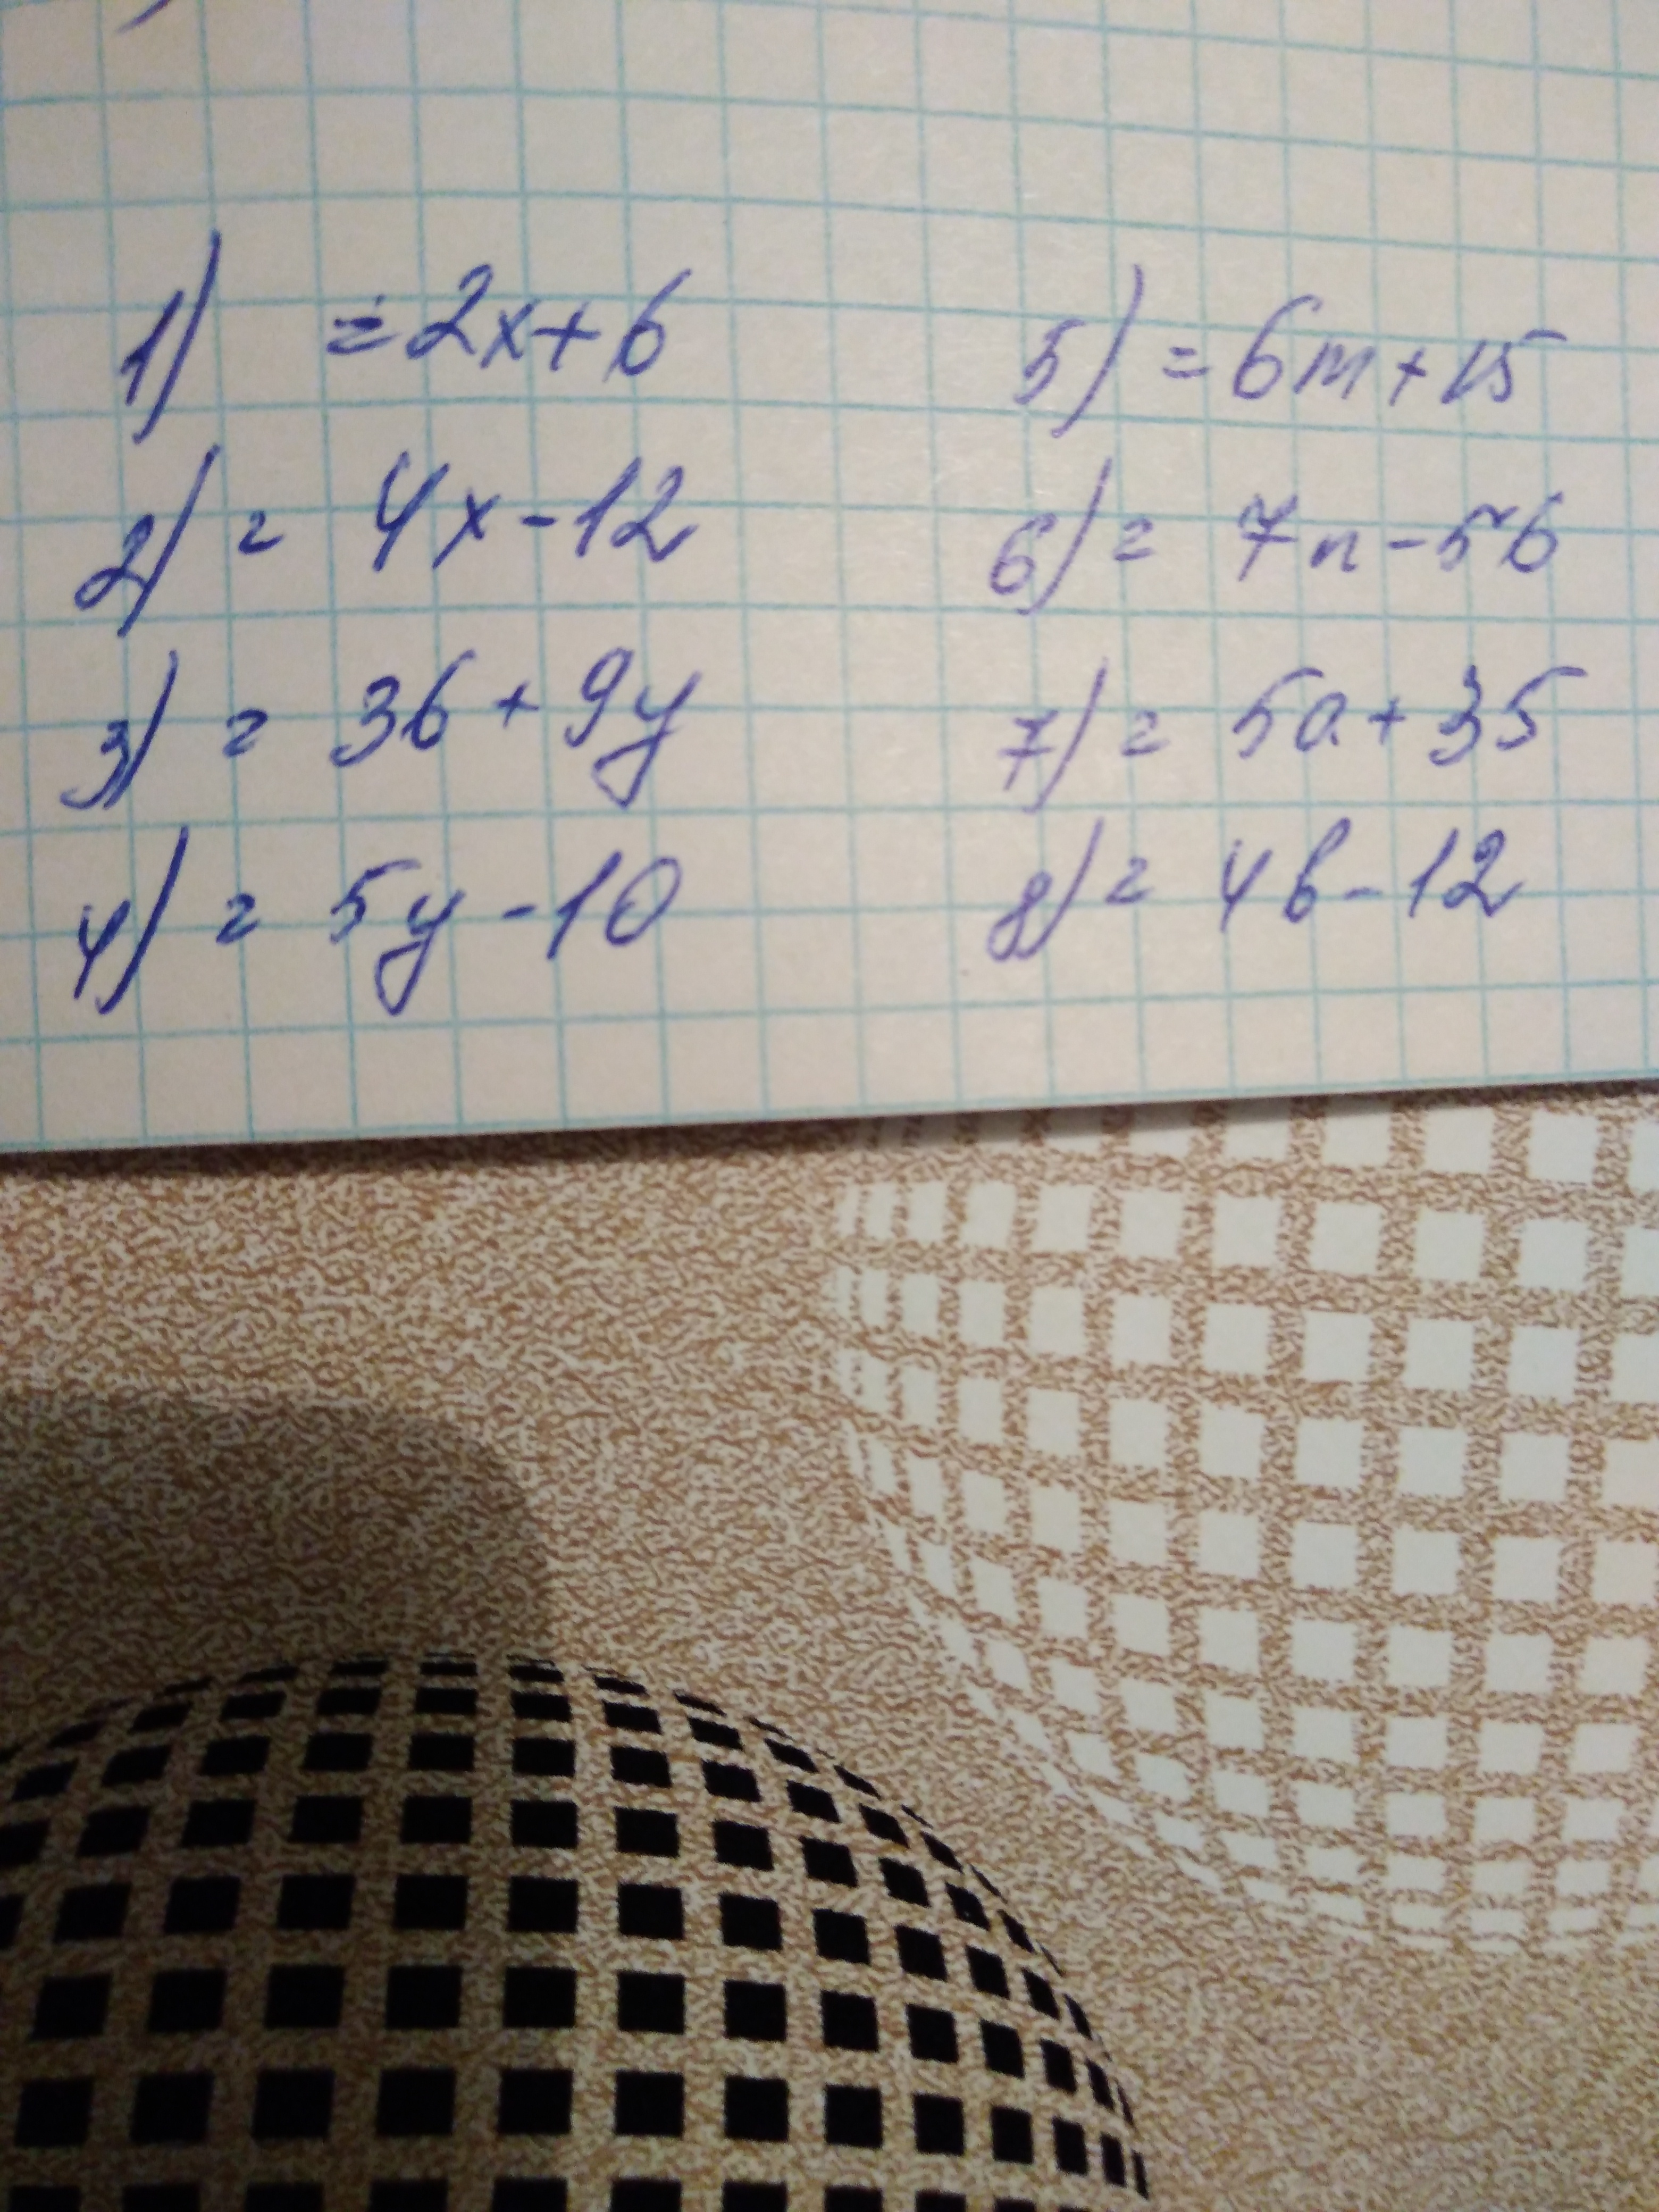 1) = 2x+6
2) = 4x-12
3) = 36+9y
4) = 5y-10
5) = 6m+15
6) = 7n-56
7) = 5a+35
8) = 4b-12